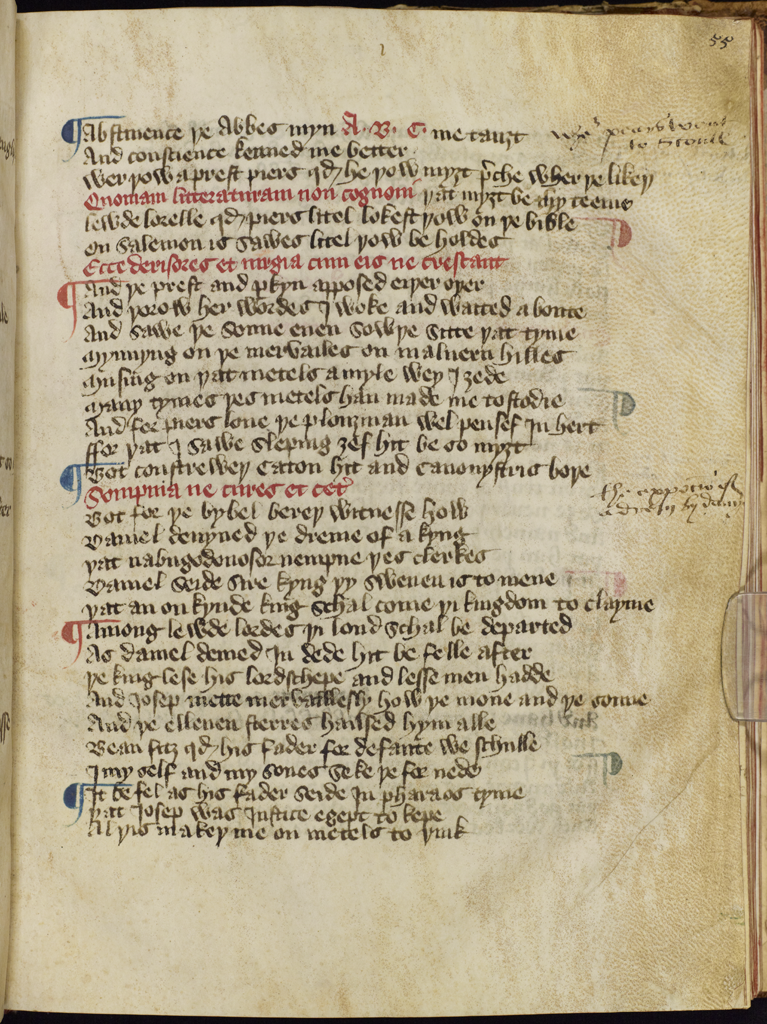 55
Abstinence þe Abbes myn A. B. C. me tauȝt
And constience kenned me better
Wer þow a prest piers qd he þow myȝt p̄che wher þe likeþ
Quoniam litteraturam non cognoui þat myȝt be thy teeme
lewde lorelle qd piers litel lokest þow on þe bible
on Salemon is sawes litel þow be holdes
Ecce derisores et iurgia cum eis ne crescant
And þe prest and pkyn apposed eiþer oþer
And þorow her wordes I woke and waited aboute
And sawe þe Sonne euen Sowþe Sitte þat tyme
Mymyng on þe mervailes on maluern hilles
Musing on þat metels a myle wey I ȝede
Many tymes þes metels han made me to stodie
And for piers loue þe plouȝman wel pensef In hert
ffor þat I sawe slepyng ȝef hit be so myȝt
Bot constrewey Caton hit and Canonystris boþe
Sompnia ne cures et cet̄
Bot for þe bybel bereþ witnesse how
Daniel demyned þe dreme of a kyng
þat nabugodonosor nempne þes clerkes
Daniel Seide Sire kyng þy Sweuen is to mene
þat an on kynde king Schal come þi kingdom to clayme
Among lewde lordes þi lond Schal be departed
As daniel demed In dede hit be felle after
þe king lese his lordschepe and lesse men hadde
And Josep mette mervaillesly how þe mone and þe sonne
And þe elleuen sterres hailsed hym alle
Beau fitz qd his fader for defaute we schulle
I my self and my sones Seke þe for nede
It be fel as his fader Seide In pharaos tyme
þat Josep was Justice egept to kepe
Al þis makeþ me on metels to þink